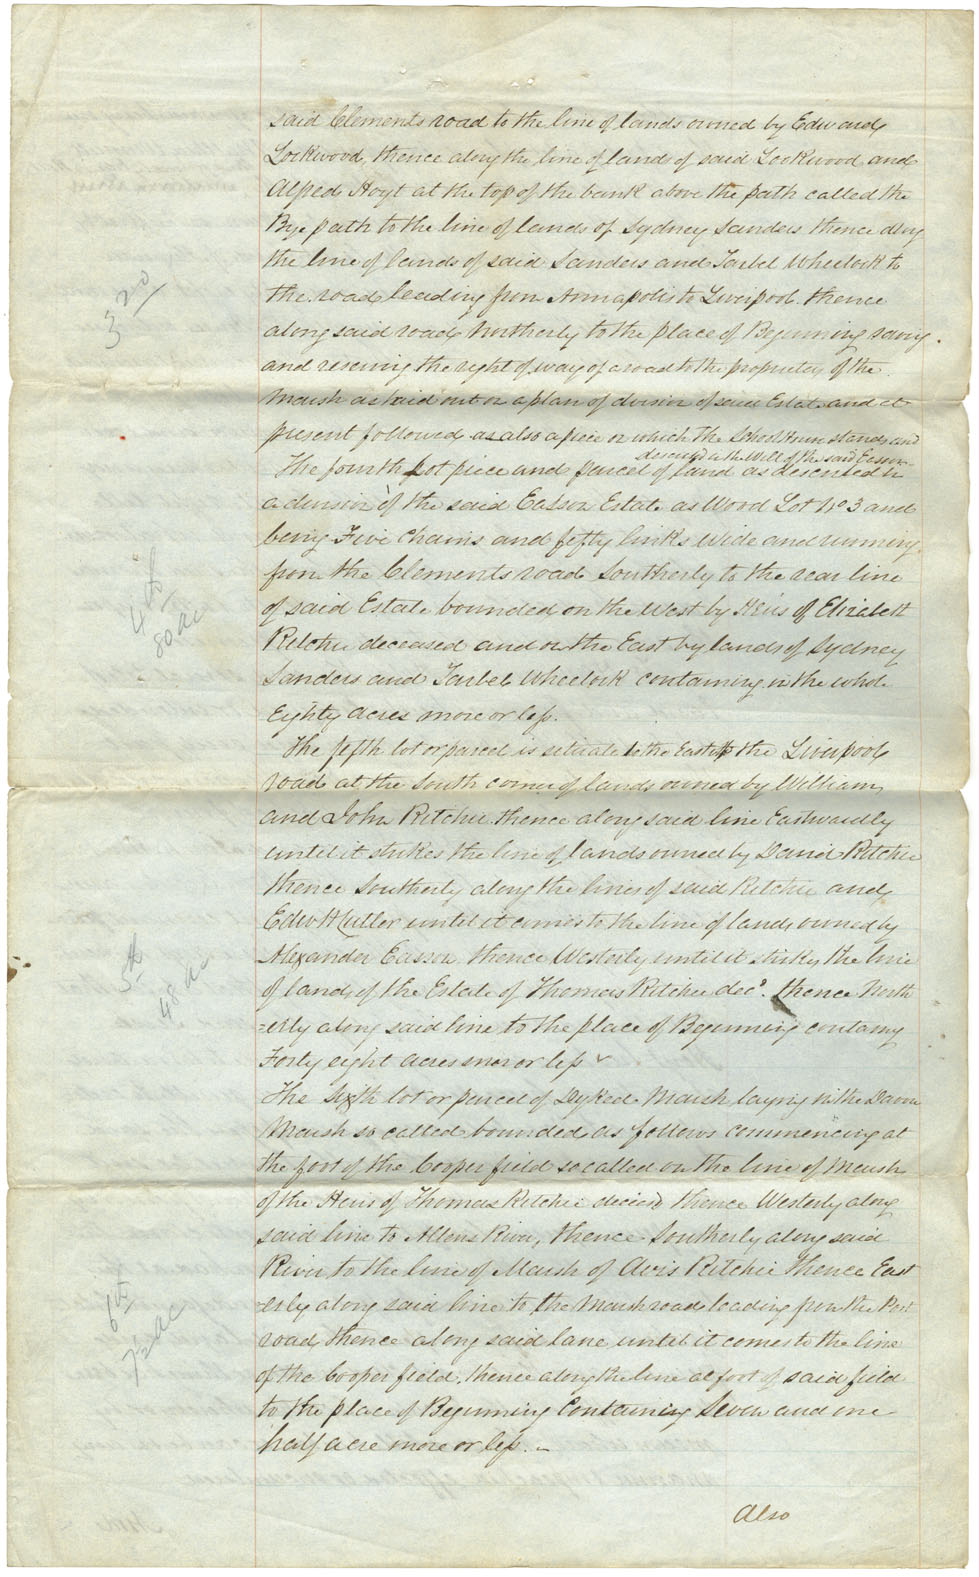 said Clements road to the line of lands owned by Edward
Lockwood, thence along the line of lands of said Lockwood and
Alfred Hoyt at the top of the bank above the path called the
Bye path to the line of lands of Sydney Sanders thence along
the line of lands of said Sanders and Tarbel Wheelock to
the road leading from Annapolis to Liverpool thence
along said road Northerly to the place of Beginning saving
and reserving the right of way of a road to the proprietors of the
Marsh as laid out on a plan of division of said Estate and at
present followed as also a piece on which the School House stands and
described in the Will of the said Easson
The fourth Lot piece and parcel of land as described in
a division of the said Easson Estate as Wood Lot No 3 and
being Five chains and fifty links wide and running
from the Clements road Southerly to the rear line
of said Estate bounded on the West by Heirs of Elizabeth
Ritchie deceased and on the East by lands of Sydney
Sanders and Tarbel Wheelock containing in the whole
Eighty acres more or less.
The fifth lot or parcel is situate to the East of the Liverpool
road at the South corner of lands owned by William
and John Ritchie thence along said line Eastwardly
until it strikes the line of lands owned by David Ritchie
thence Southerly along the lines of said Ritchie and
Edw H Cutler until it comes to the line of lands owned by
Alexander Easson thence Westerly until it strikes the line
of lands of the Estate of Thomas Ritchie decd. thence North
=erly along said line to the place of Beginning containing
Forty eight acres more or less
The Sixth lot or parcel of Dyked Marsh laying in the
Marsh so called bounded as follows commencing at
the foot of the Cooper field so called on the line of Marsh
of the Heirs of Thomas Ritchie deceasd thence Westerly along
said line to Allens River, thence Southerly along said
River to the line of Marsh of Avis Ritchie thence East
=erly along said line to the Marsh road leading from the Post
road thence along said lane until it comes to the line
of the Cooper field, thence along the line at foot of said field
to the place of Beginning Containing Seven and one
half acre more or less.
Also
3 20
4th
80 ac
5th
48 ac
6th
7½ ac